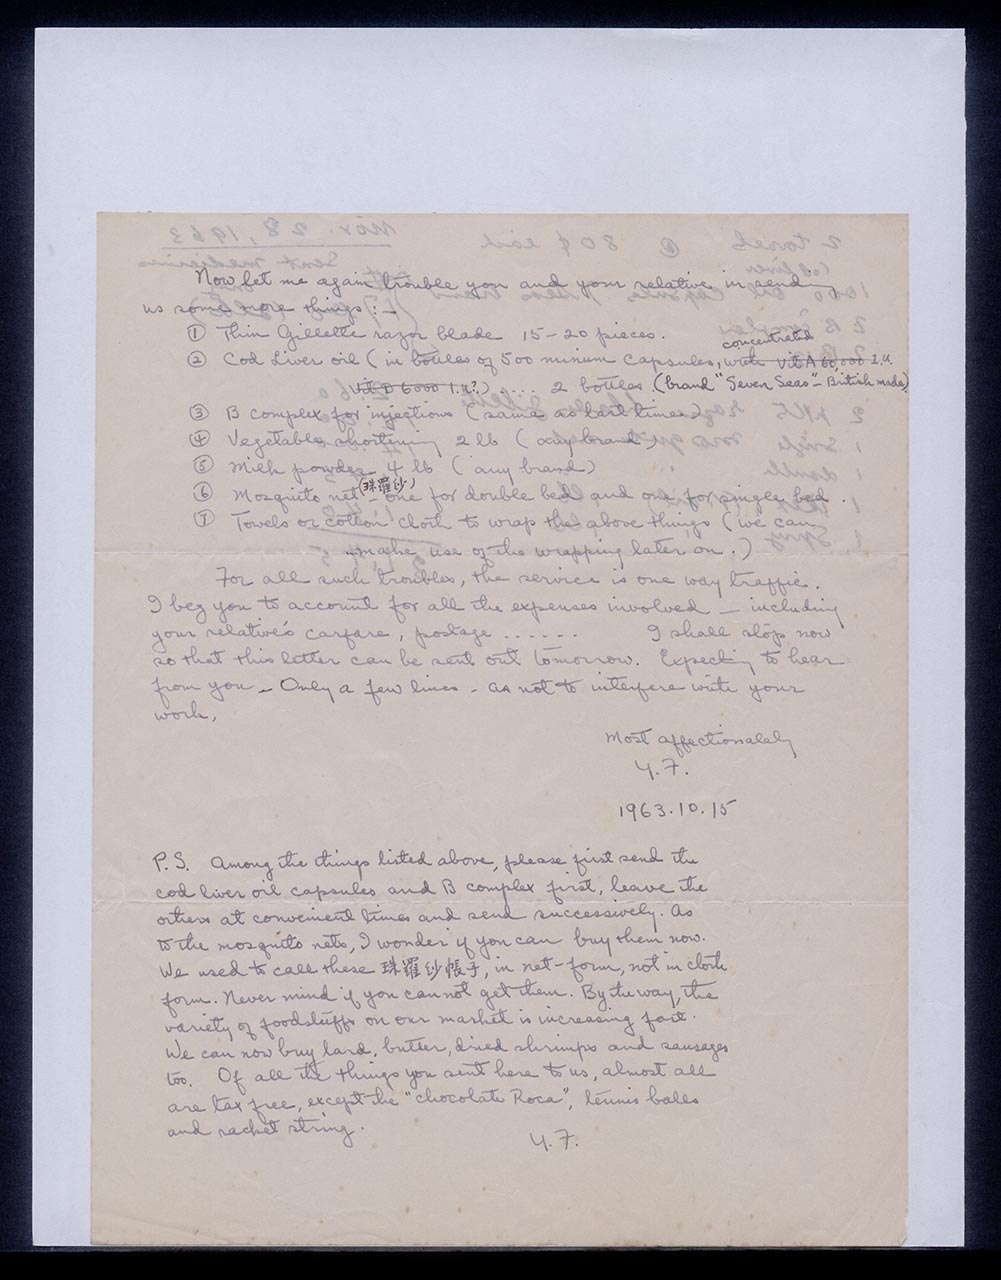 Now let me again trouble you and your relative in sending
us some more things :-
① Thin Gillette razor blade 15-20 pieces.
② Cod Liver oil (in bottles of 500 minim capsules, concentrated with Vit A 60,000 I.U.
Vit D 6000 I.U.?) ... 2 bottles (brand "Seven Seas" - British made)
③ B complex for injections (same as last times)
④ Vegetable shortining 2 lb (any brand)
⑤ Milk powder 4 lb (any brand)
⑥ Mosquito net (珠羅紗) - one for double bed and one for single bed.
⑦ Towels or cotton cloth to wrap the above things (we can
make use of the wrapping later on.)
For all such troubles, the service is one way traffic.
I beg you to account for all the expenses involved — including
your relative's carfare, postage ...... I shall stop now
so that this letter can be sent out tomorrow. Expecting to hear
from you - Only a few lines - as not to interfere with your
work.
Most affectionately
Y.F.
1963.10.15
P.S. Among the things listed above, please first send the
cod liver oil capsules and B complex first, leave the
others at convenient times and send successively. As
to the mosquito nets, I wonder if you can buy them now.
We used to call these 珠羅紗帳子, in net-form, not in cloth
form. Never mind if you can not get them. By the way, the
variety of foodstuffs on our market is increasing fast.
We can now buy lard, butter, dried shrimps and sausages
too. Of all the things you sent here to us, almost all
are tax free, except the "chocolate Roca", tennis balls
and racket string.
Y.F.
Nov. 28, 1963
2 towels @ 80¢ each
Sent medicine